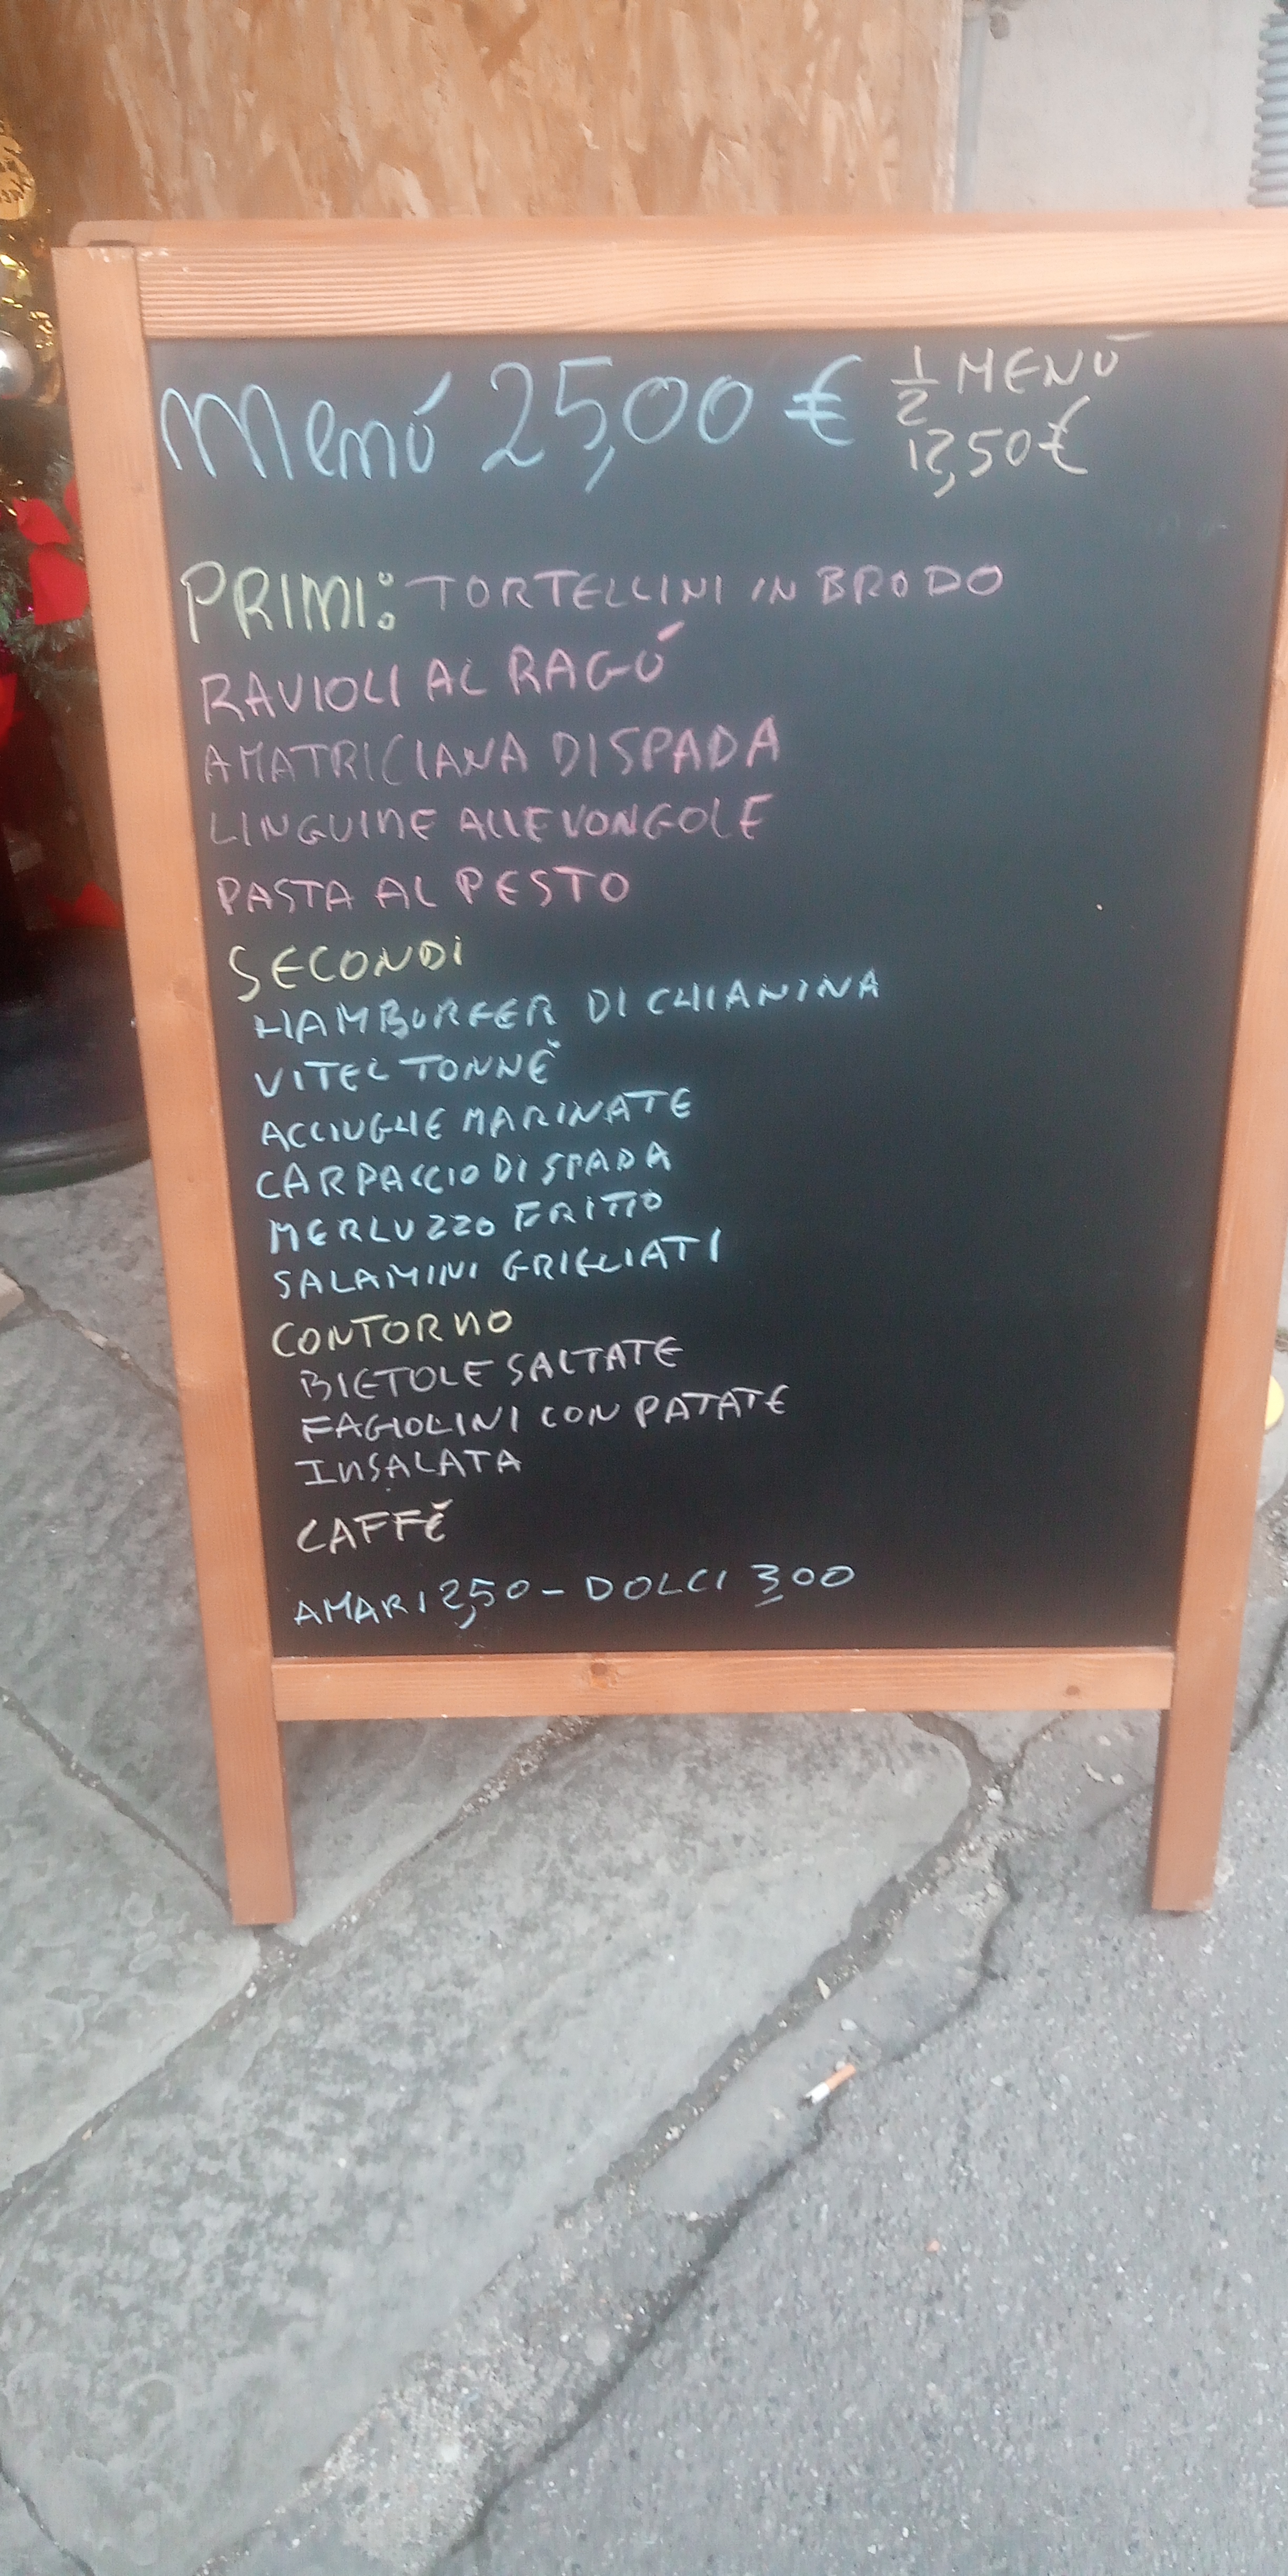 Menú 25,00 € 1/2 MENÚ
12,50 €
PRIMI: TORTELLINI IN BRODO
RAVIOLI AL RAGÚ
AMATRICIANA DI SPADA
LINGUINE ALLE VONGOLE
PASTA AL PESTO
SECONDI
HAMBURGER DI CHIANINA
VITEL TONNÈ
ACCIUGHE MARINATE
CARPACCIO DI SPADA
MERLUZZO FRITTO
SALAMINI GRIGLIATI
CONTORNO
BIETOLE SALTATE
FAGIOLINI CON PATATE
INSALATA
CAFFÈ
AMARI 2,50 - DOLCI 3 00